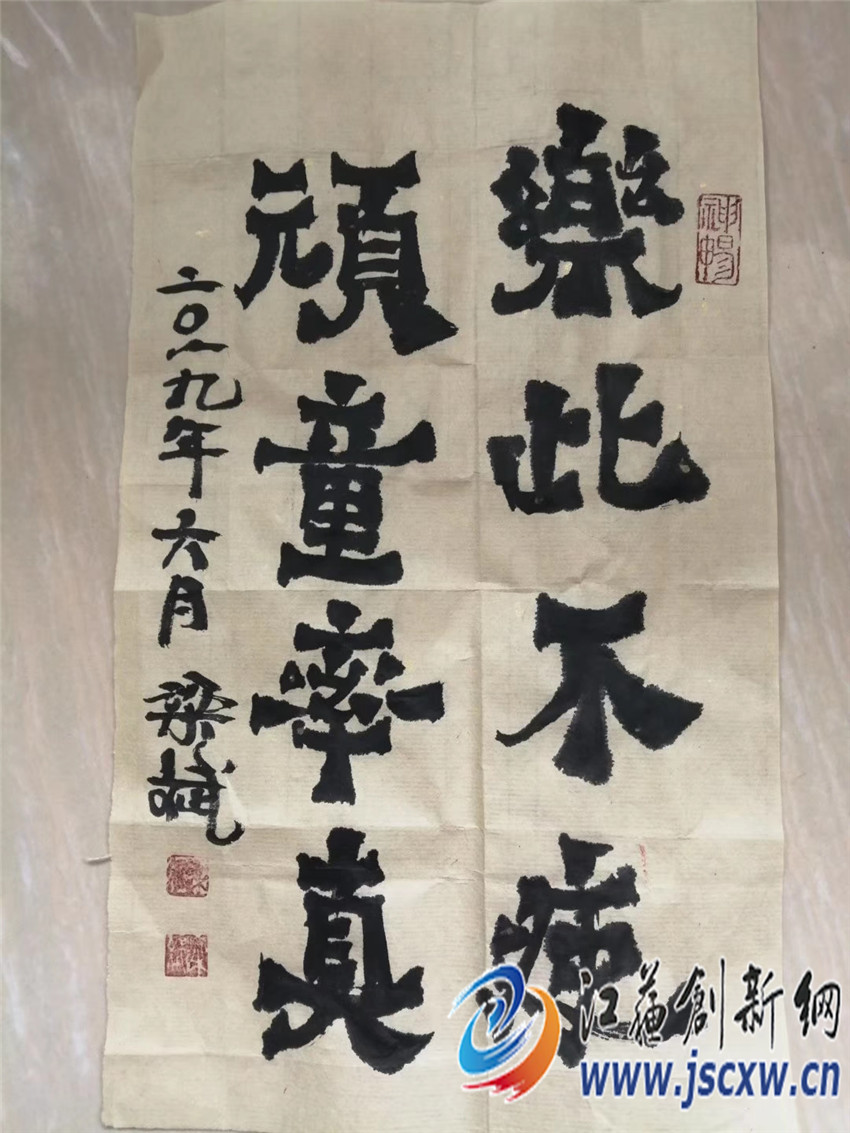 樂此不疲
頑童率真
二〇一九年六月 梁斌
神暢
江蘇創新網
www.jscxw.cn